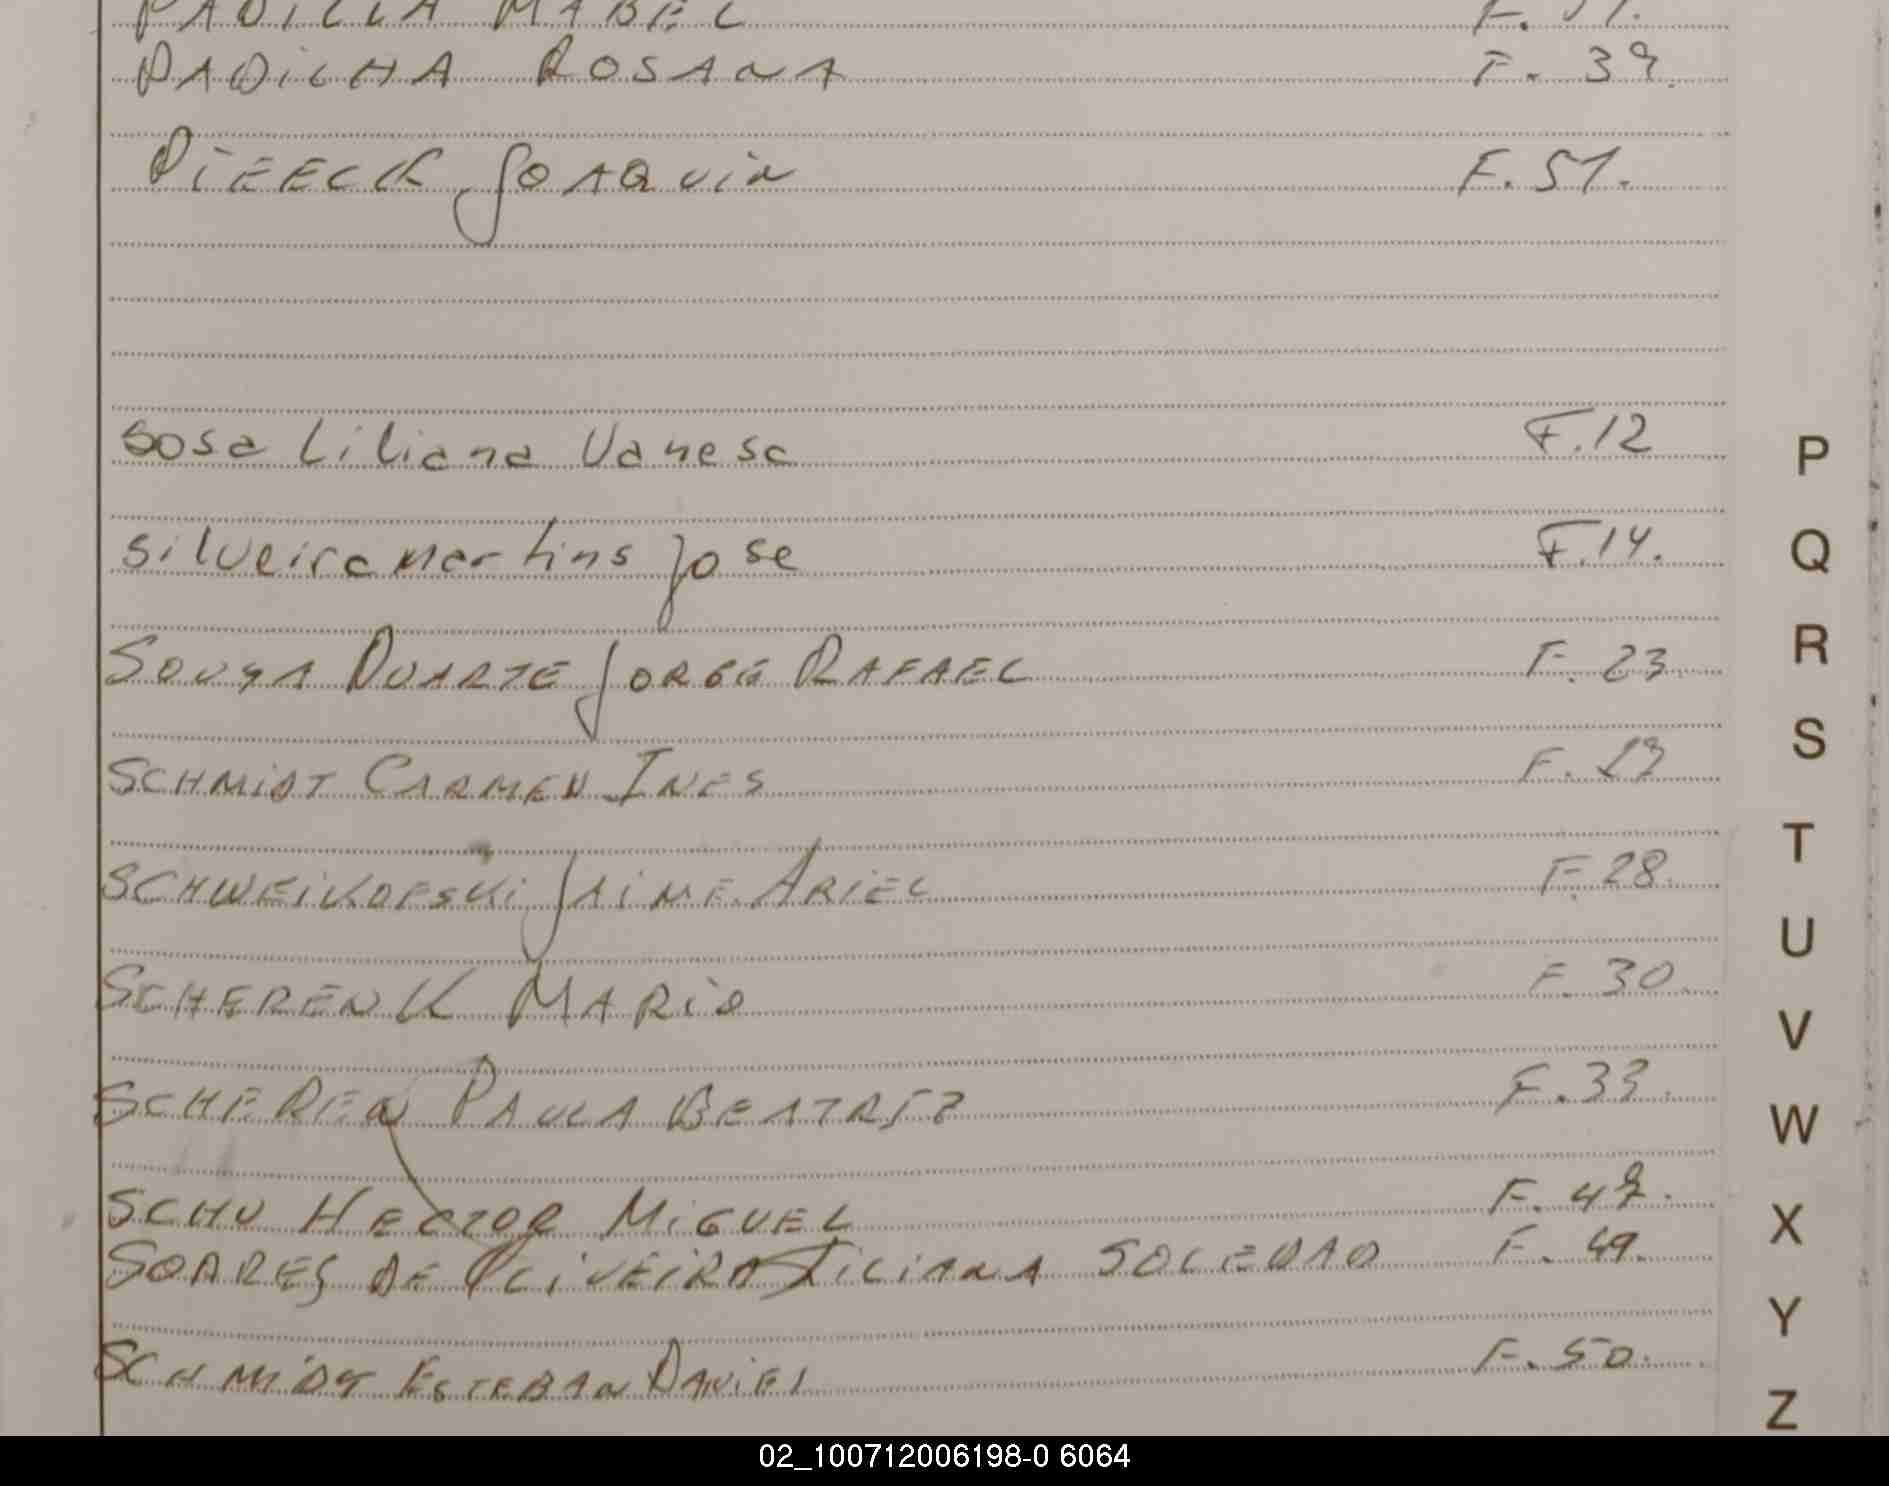 PADILLA MABEL
PADILHA ROSANA F. 39.
PIEECK JOAQUIN F. 51.
sosa Liliana Vanesa F.12
silveira martins jose F.14.
SOUZA DUARTE JORGE RAFAEL F. 23
SCHMIDT CARMEN INES F. 27
SCHWEIKOFSKI JAIME ARIEL F.28.
SCHEREN K MARIO F. 30.
SCHEREN PAULA BEATRIZ F.33.
SCHU HECTOR MIGUEL F.
SOARES DE OLIVEIRA LILIANA SOLEDAD F. 49.
SCHMIDT ESTEBAN DANIEL F. 50.
P
Q
R
S
T
U
V
W
X
Y
Z
02_100712006198-0 6064